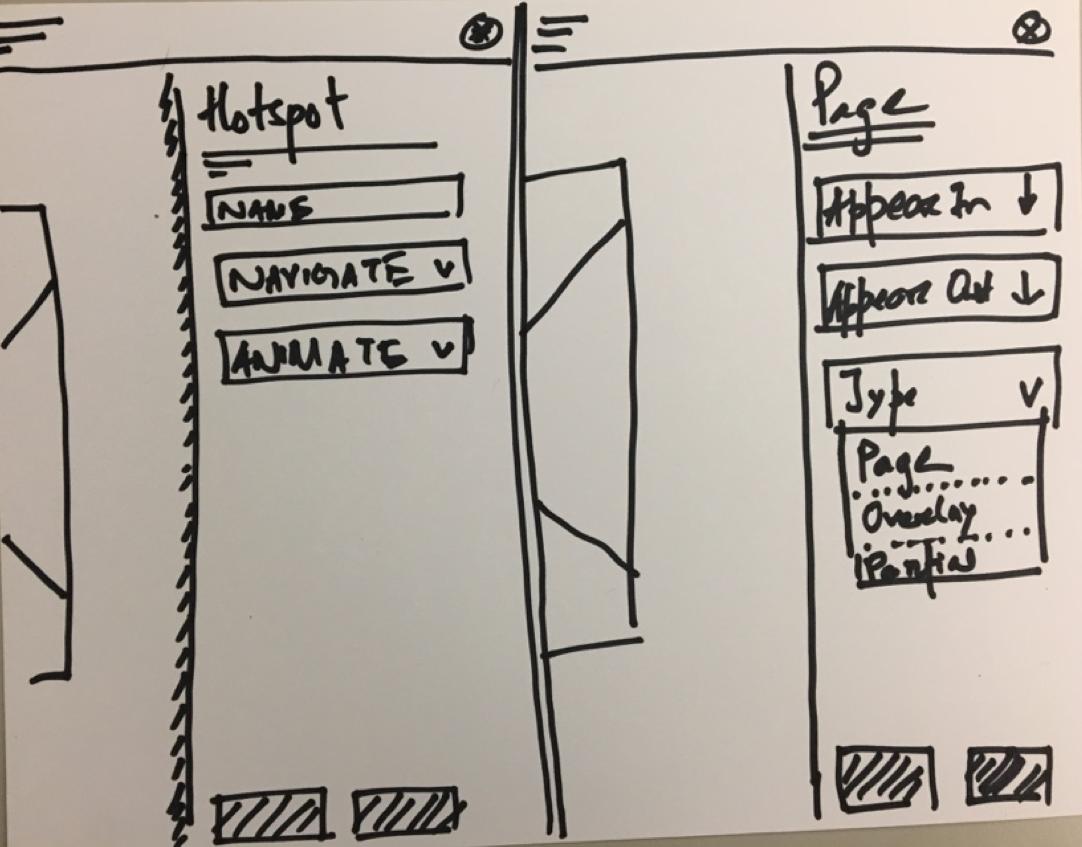 Hotspot
NAME
NAVIGATE
ANIMATE
Page
Appear In
Appear Out
Type
Page
Overlay
Partial